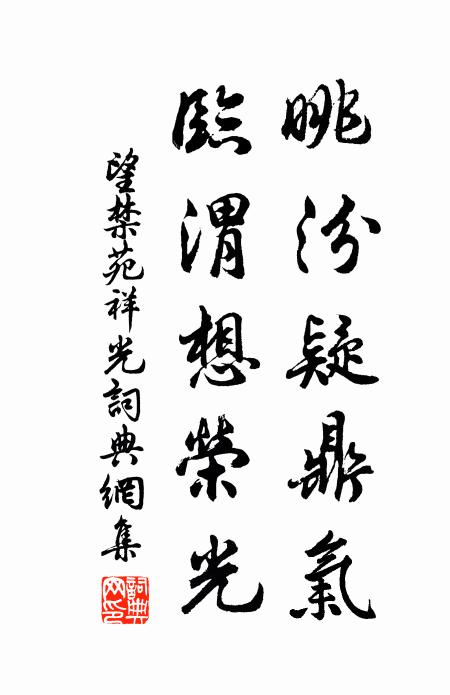 眺汾疑鼎氣
臨渭想榮光
望禁苑祥光詞典網集
詞典網印